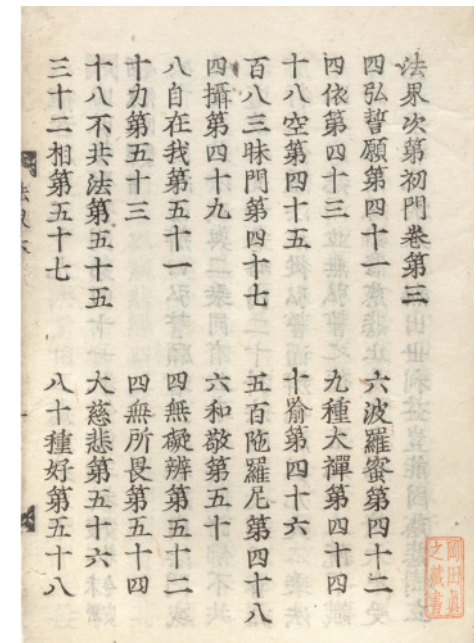 法界次第初門卷第三
四弘誓願第四十一 六波羅蜜第四十二
四依第四十三 九種大禪第四十四
十八空第四十五 十喻第四十六
百八三昧門第四十七 五百陁羅尼第四十八
四攝第四十九 六和敬第五十
八自在我第五十一 四無礙辨第五十二
十力第五十三 四無所畏第五十四
十八不共法第五十五 大慈悲第五十六
三十二相第五十七 八十種好第五十八
岡田眞
之藏書